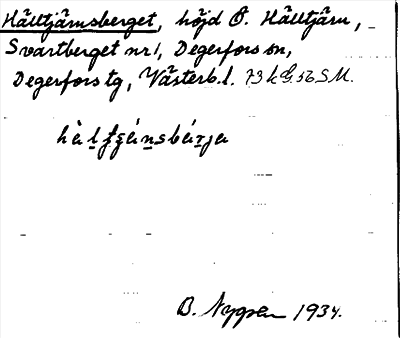 Hälltjärnsberget, höjd Ö. Hälltjärn,
Svartberget nr 1, Degerfors sn,
Degerfors tg, Västerb. l. 73 k G. 56 S M.
B. Nygren 1934.